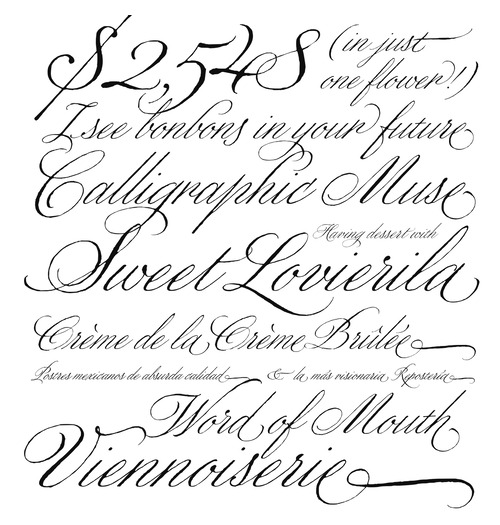 $2,548 (in just
one flower!)
I see bonbons in your future
Calligraphic Muse
Having dessert with
Sweet Lovierila
Crème de la Crème Brûlée
Postres mexicanos de absurda calidad & la más visionaria Repostería
Word of Mouth
Viennoiserie